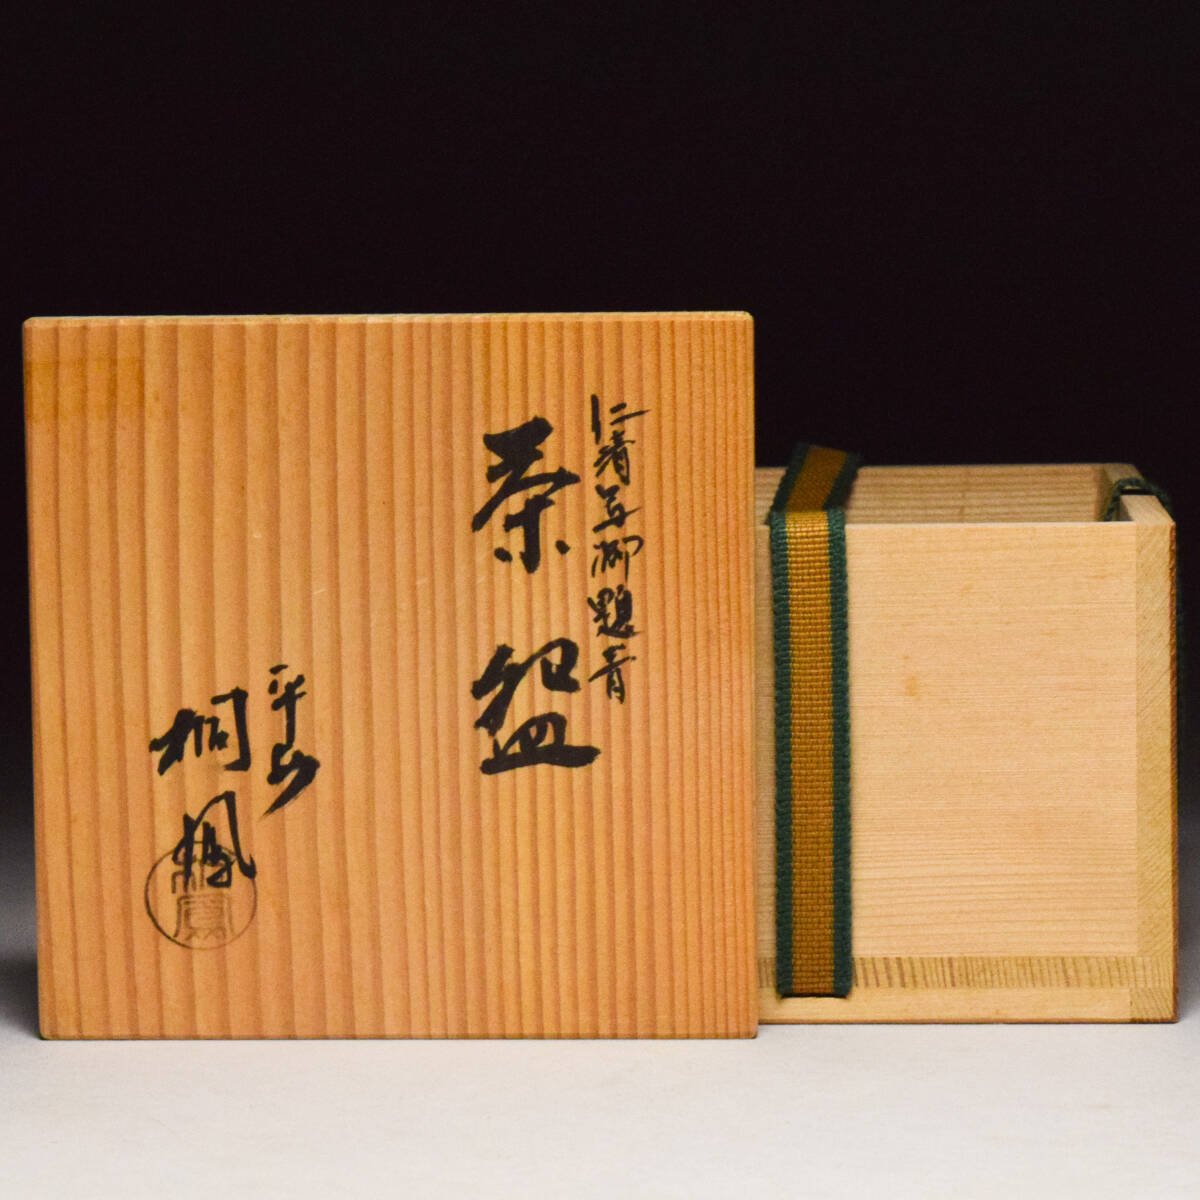 仁清写御題青
茶盌
平山
桐鳳